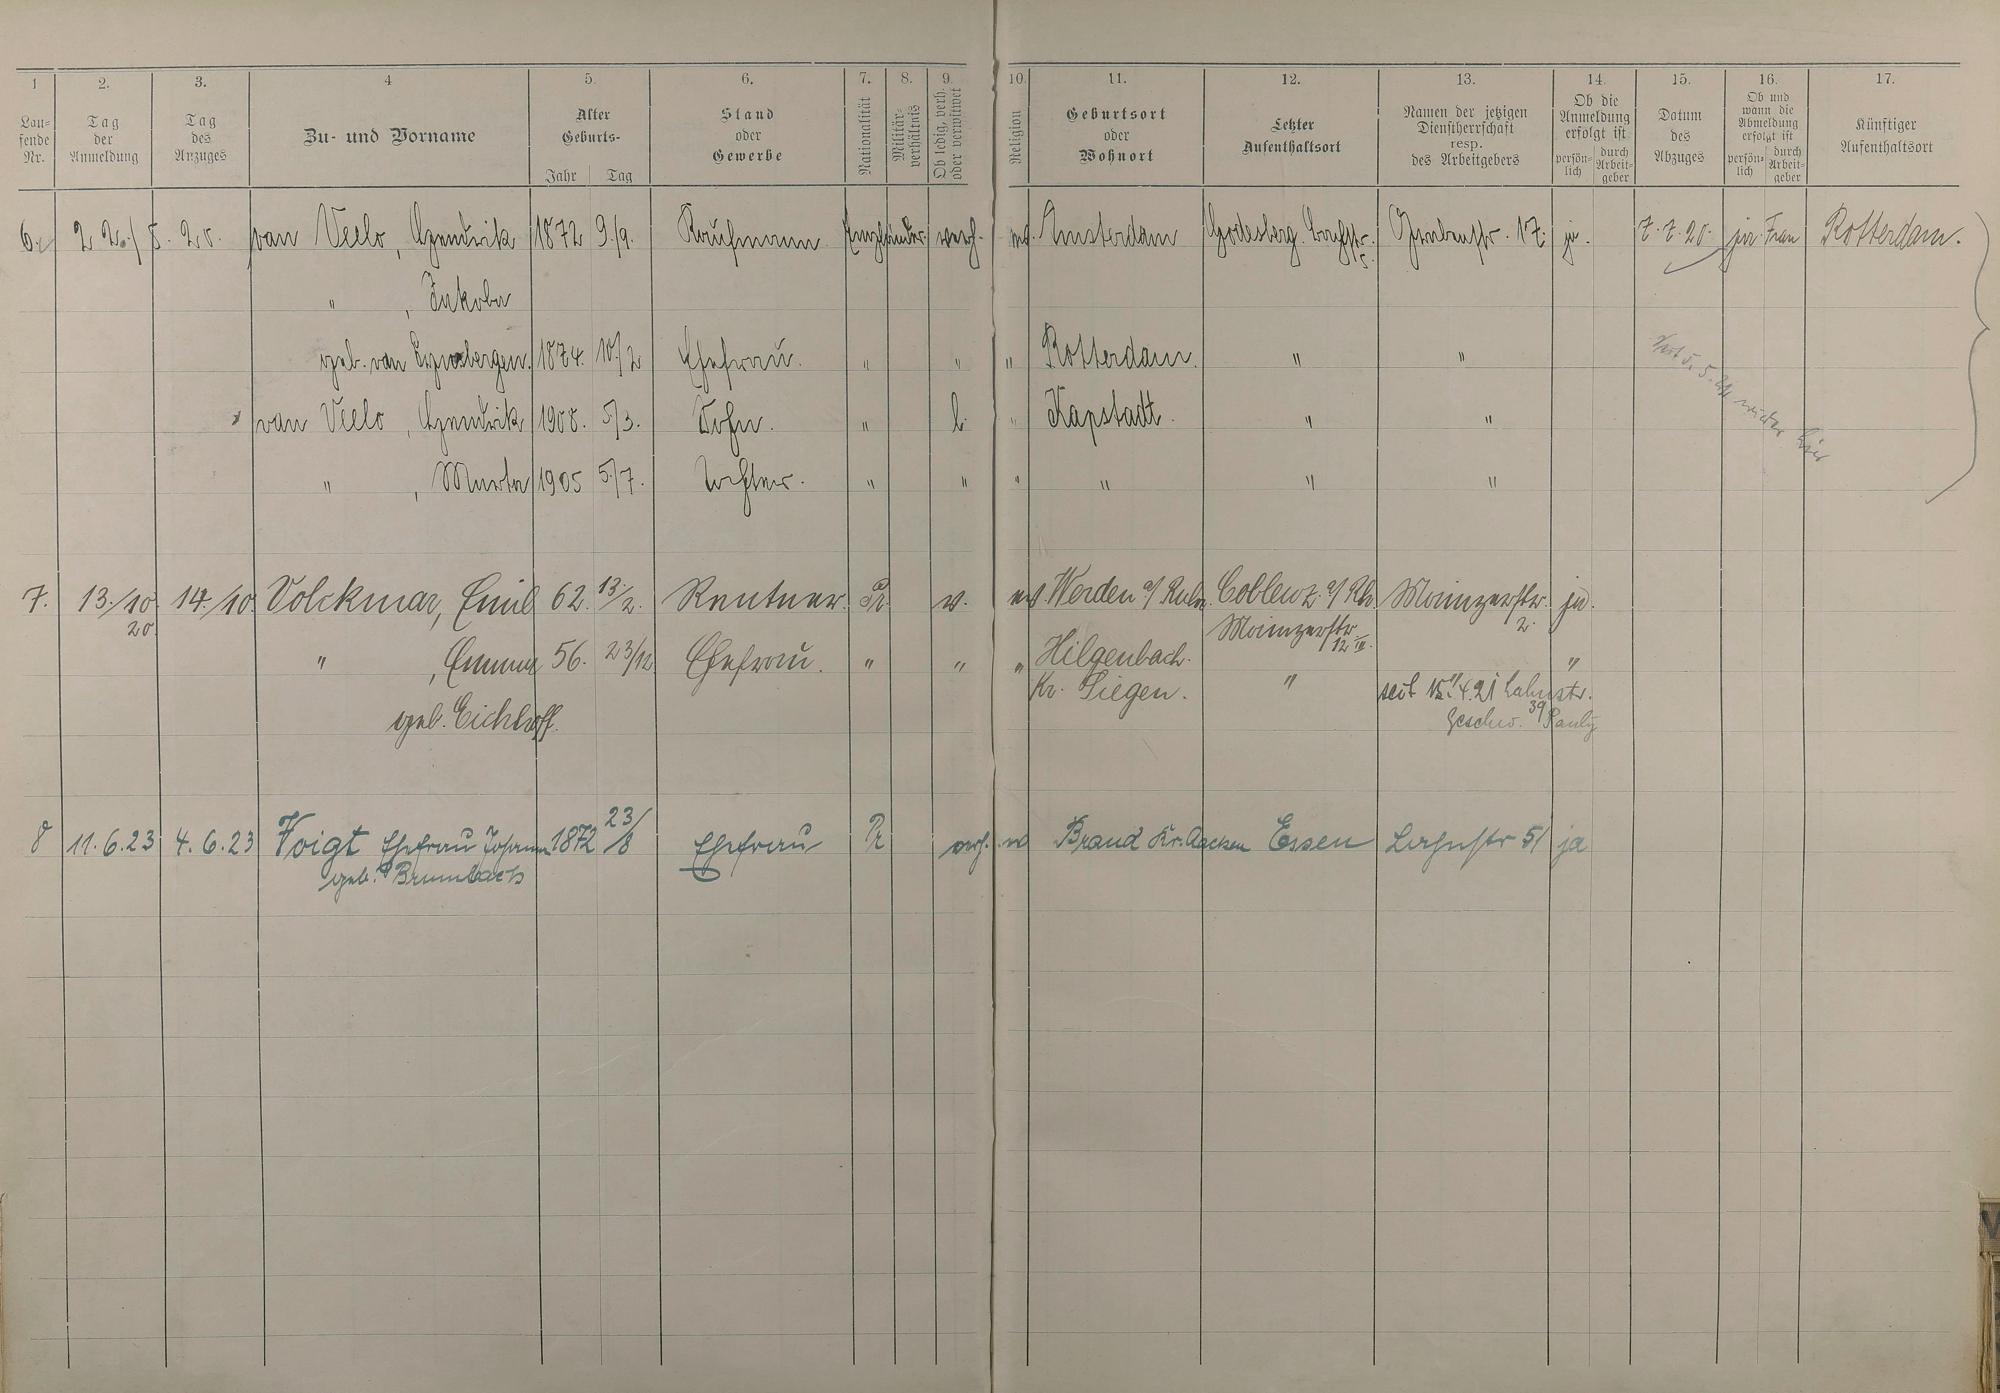 1 2. 3. 4 5. 6. 7. 8. 9. 10. 11. 12. 13. 14. 15. 16. 17.
Lau-
fende
Nr.
Tag
der
Anmeldung
Tag
des
Anzuges
Zu- und Vorname
Alter
Geburts-
Jahr Tag
Stand
oder
Gewerbe
Nationalität
Militär-
verhältnis
Ob ledig, verh.
oder verwitwet
Religion
Geburtsort
oder
Wohnort
Letzter
Aufenthaltsort
Namen der jetzigen
Dienstherrschaft
resp.
des Arbeitgebers
Ob die
Anmeldung
erfolgt ist
persön-
lich
durch
Arbeit-
geber
Datum
des
Abzuges
Ob und
wann die
Abmeldung
erfolgt ist
persön-
lich
durch
Arbeit-
geber
Künftiger
Aufenthaltsort
6. 22./5. 20. van Veelo, Hendrik 1872 9./9. Kaufmann verh. Amsterdam Godesberg 5. Grabenstr. 17. ja. 7. 7. 20. ja Frau Rotterdam.
" , Jakoba
geb. van 1874. 10/2 Ehefrau. " " " Rotterdam. " "
van Veelo, Hendrik 1908. 5/3. Sohn. " l. " Kapstadt. " "
" , Marta 1905 5./7. Tochter. " " " " " "
5. 5. wieder hier
7. 13./10. 20. 14./10. Volckmar, Emil 62. 13./2. Rentner. Pr. v. ev. Werden a/ Ruhr. Coblenz a/ Rh. Mainzerstr. 2. ja.
Mainzerstr. 12 III.
" , Emma 56. 23/12 Ehefrau. " " " Hilgenbach. "
Kr. Siegen. " seit 15. 4. 21 Lahnstr. 39
geb. Eichhoff. Geschw. Pauly
8 11. 6. 23 4. 6. 23 Voigt Ehefrau Johanna 1872 23/8 Ehefrau Pr verh. Brand Kr. Aachen Essen Lahnstr 51 ja
geb. Brumbach